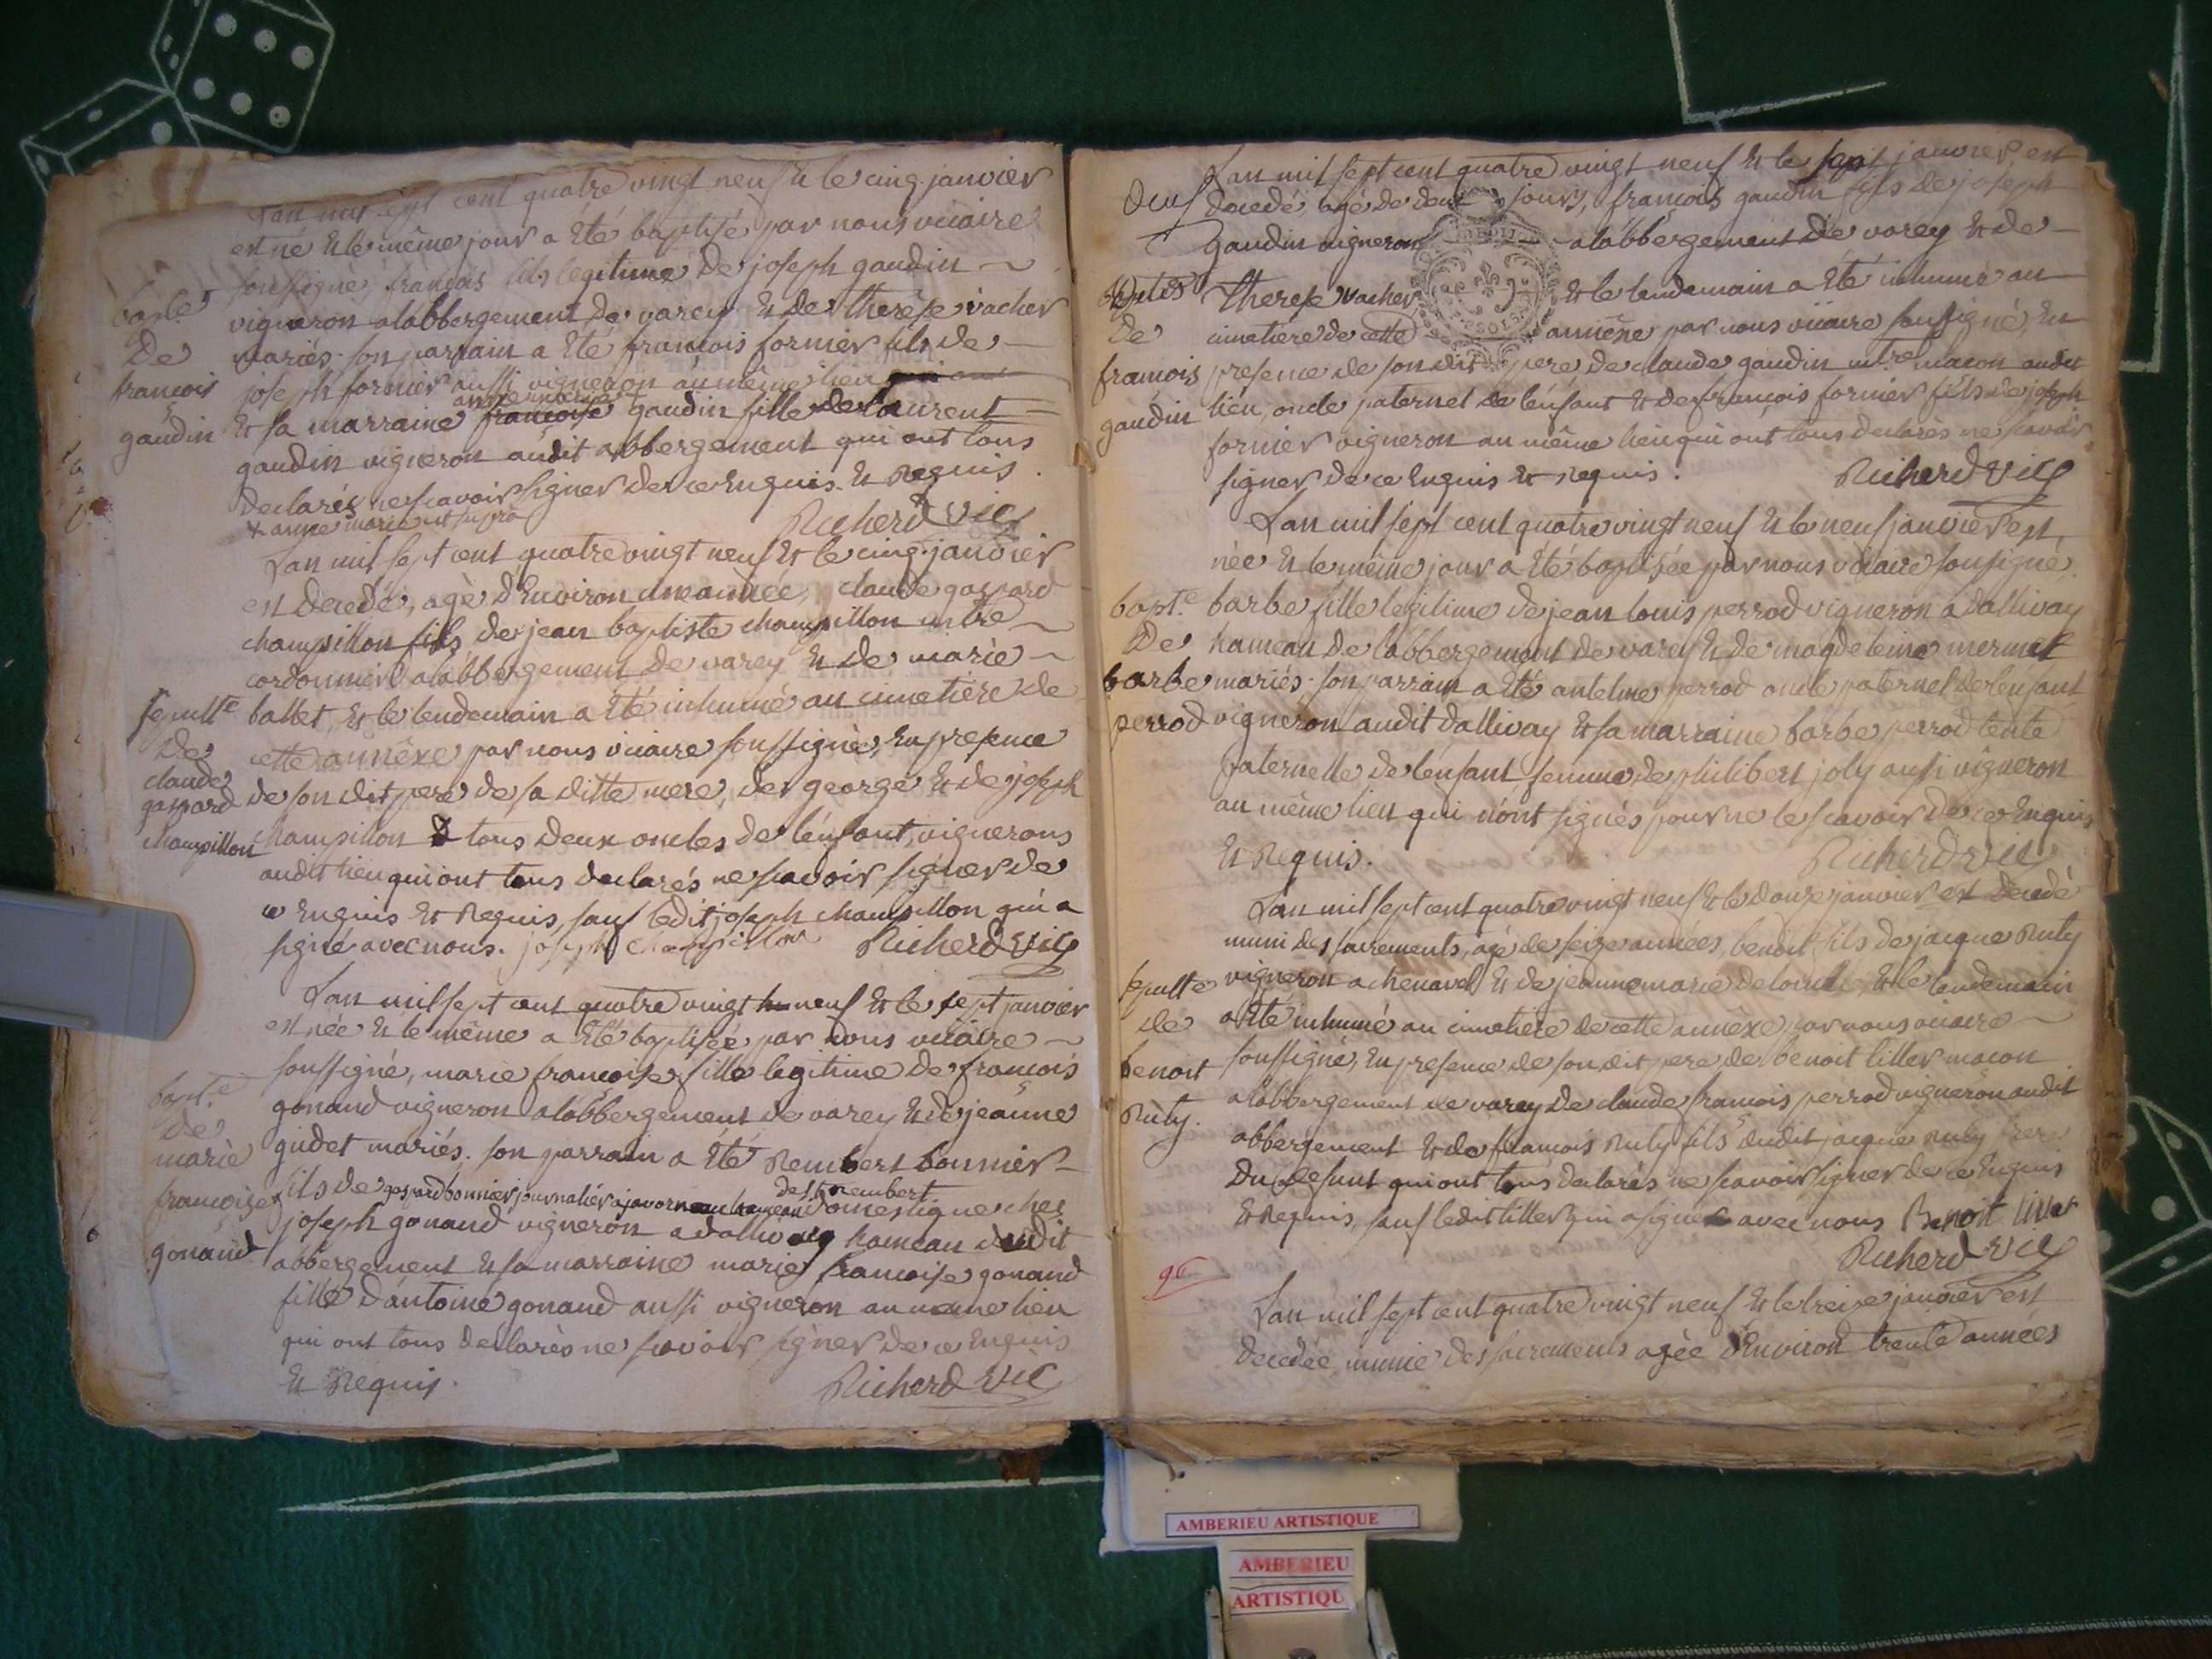 Lan mil sept cent quatre vingt neuf et le cinq janvier
est né et le même jour a été baptisé par nous vicaire
soussigné, francois fils legitime de joseph gaudin
vigneron alabbergement de varey et de therese vacher
mariés. son parrain a été francois fornier fils de
joseph fornier aussi vigneron au même lieu
et sa marraine francoise gaudin fille de laurent
gaudin vigneron audit abbergement qui ont tous
declarés ne scavoir signer de ce enquis et requis.
+ anne marie ut supra
Richerd vic
bapt.e
De
francois
gaudin
Lan mil sept cent quatre vingt neuf et le cinq janvier
est decedé, agé d'environ une année, claude gaspard
champillon fils de jean baptiste champillon mtre
cordonnier alabbergement de varey et de marie
ballet, et le lendemain a été inhumé au cimetiere de
cette annexe par nous vicaire soussigné, en presence
de son dit pere de sa ditte mere, de george et de joseph
champillon tous deux oncles de lenfant, vignerons
audit lieu qui ont tous declarés ne scavoir signer de
ce enquis et requis, sauf ledit joseph champillon qui a
signé avec nous. joseph champillon Richerd vic
sepult.e
De
claude
gaspard
champillon
Lan mil sept cent quatre vingt neuf et le sept janvier
est née et le même a été baptisée par nous vicaire
soussigné, marie francoise fille legitime de francois
gonand vigneron alabbergement de varey et de jeanne
gudet mariés. son parrain a été Rembert bonnier
fils de gaspard bonnier journalier a javornau hameau domestique chez
joseph gonand vigneron a dallivay hameau dudit
abbergement et sa marraine marie francoise gonand
fille d'antoine gonand aussi vigneron au même lieu
qui ont tous declarés ne scavoir signer de ce enquis
et Requis. Richerd vic
bapt.e
De
marie
francoise
gonand
Lan mil sept cent quatre vingt neuf et le sept janvier, est
decedé, agé de deux jours, francois gaudin fils de joseph
gaudin vigneron alabbergement de varey et de
therese vacher, et le lendemain a été inhumé au
cimetiere de cette annexe par nous vicaire soussigné, en
presence de son dit pere de claude gaudin mtre macon audit
lieu, oncle paternel de lenfant et de francois fornier fils de joseph
fornier vigneron au même lieu qui ont tous declarés ne scavoir
signer de ce enquis et requis. Richerd vic
De
francois
gaudin
Lan mil sept cent quatre vingt neuf et le neuf janvier est
née et le même jour a été baptisée par nous vicaire soussigné
barbe fille legitime de jean louis perrod vigneron a dallivay
hameau de labbergement de varey et de magdeleine mermet
mariés. son parrain a été antelme perrod oncle paternel de lenfant
vigneron audit dallivay et sa marraine barbe perrod tente
paternelle de lenfant, femme de philibert joly aussi vigneron
au même lieu qui n'ont signés pour ne le scavoir de ce enquis
et Requis. Richerd vic
bapt.e
De
barbe
perrod
Lan mil sept cent quatre vingt neuf et le douze janvier est decedé
muni des sacrements, agé de seize années, benoit fils de jacque Ruty
vigneron a chenavel et de jeanne marie et le lendemain
a été inhumé au cimetiere de cette annexe, par nous vicaire
soussigné, en presence de son dit pere, de benoit litler macon
alabbergement de varey de claude francois perrod vigneron audit
abbergement et de francois Ruty fils dudit jacque Ruty frere
du defunt qui ont tous declarés ne scavoir signer de ce enquis
et Requis, sauf ledit litler qui a signé avec nous
Richerd vic
sepult.e
de
benoit
Ruty.
Lan mil sept cent quatre vingt neuf et le treize janvier est
decedée, munie des sacrements agée d'environ trente années
AMBERIEU ARTISTIQUE
AMBERIEU
ARTISTIQU